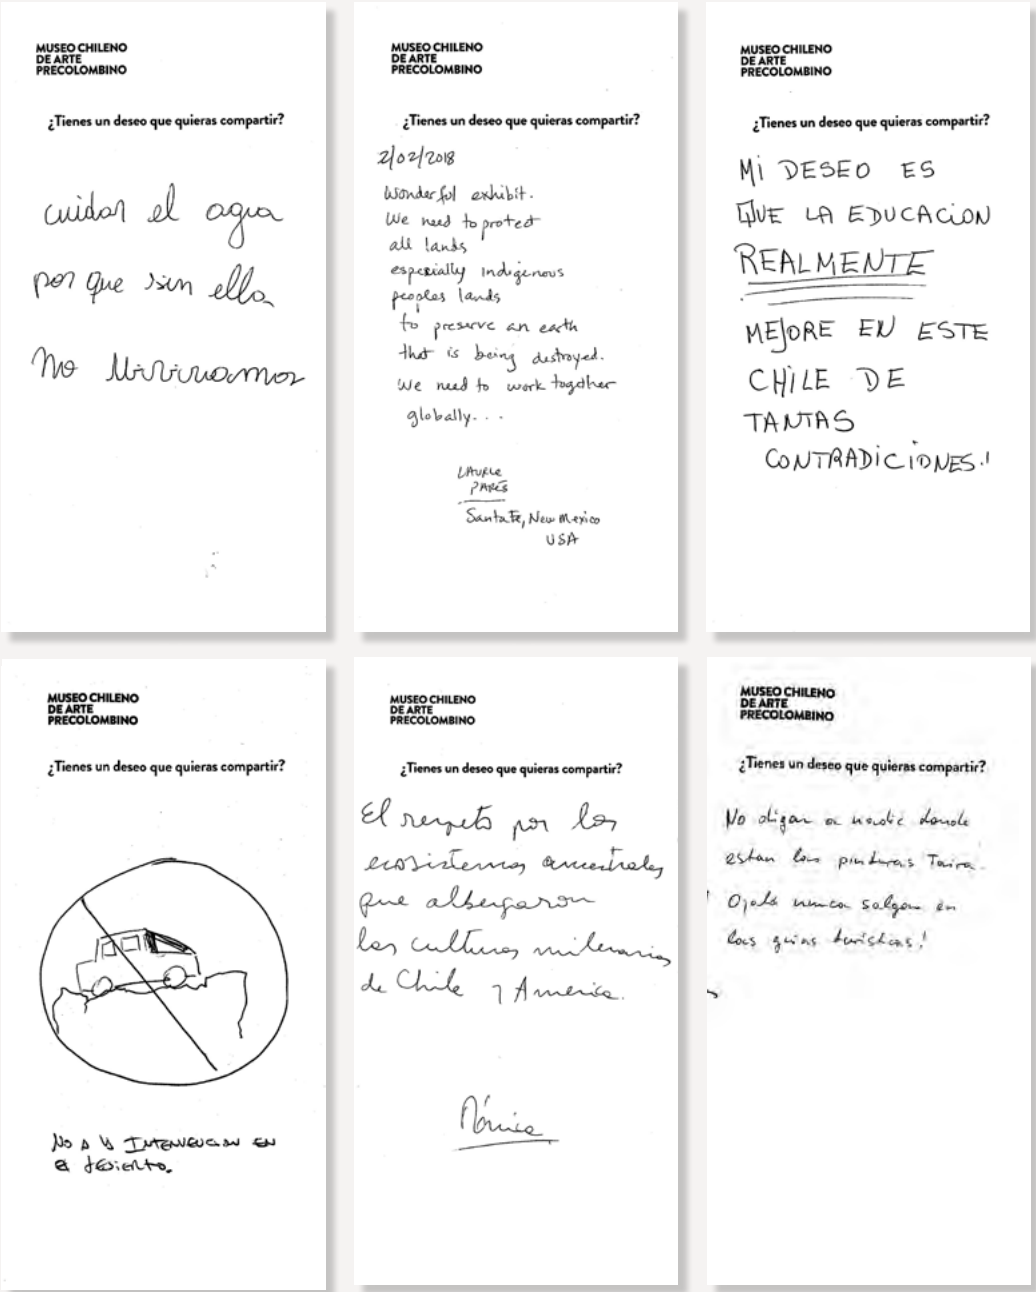 MUSEO CHILENO
DE ARTE
PRECOLOMBINO
¿Tienes un deseo que quieras compartir?
cuidar el agua
por que sin ella
no viviriamos
MUSEO CHILENO
DE ARTE
PRECOLOMBINO
¿Tienes un deseo que quieras compartir?
2/02/2018
Wonderful exhibit.
We need to protect
all lands
especially indigenous
peoples lands
to preserve an earth
that is being destroyed.
We need to work together
globally...
LAURIE
PARÉS
Santa Fe, New Mexico
USA
MUSEO CHILENO
DE ARTE
PRECOLOMBINO
¿Tienes un deseo que quieras compartir?
Mi DESEO ES
QUE LA EDUCACION
REALMENTE
MEJORE EN ESTE
CHiLE DE
TANTAS
CONTRADiCiONES!
MUSEO CHILENO
DE ARTE
PRECOLOMBINO
¿Tienes un deseo que quieras compartir?
NO A LA INTERVENCION EN
El desierto.
MUSEO CHILENO
DE ARTE
PRECOLOMBINO
¿Tienes un deseo que quieras compartir?
El respeto por los
ecosistemas ancestrales
que albergaron
las culturas milenarias
de Chile y America.
Mónica
MUSEO CHILENO
DE ARTE
PRECOLOMBINO
¿Tienes un deseo que quieras compartir?
No digan a nadie donde
estan las pinturas Taira.
Ojalá nunca salgan en
las guias turisticas!